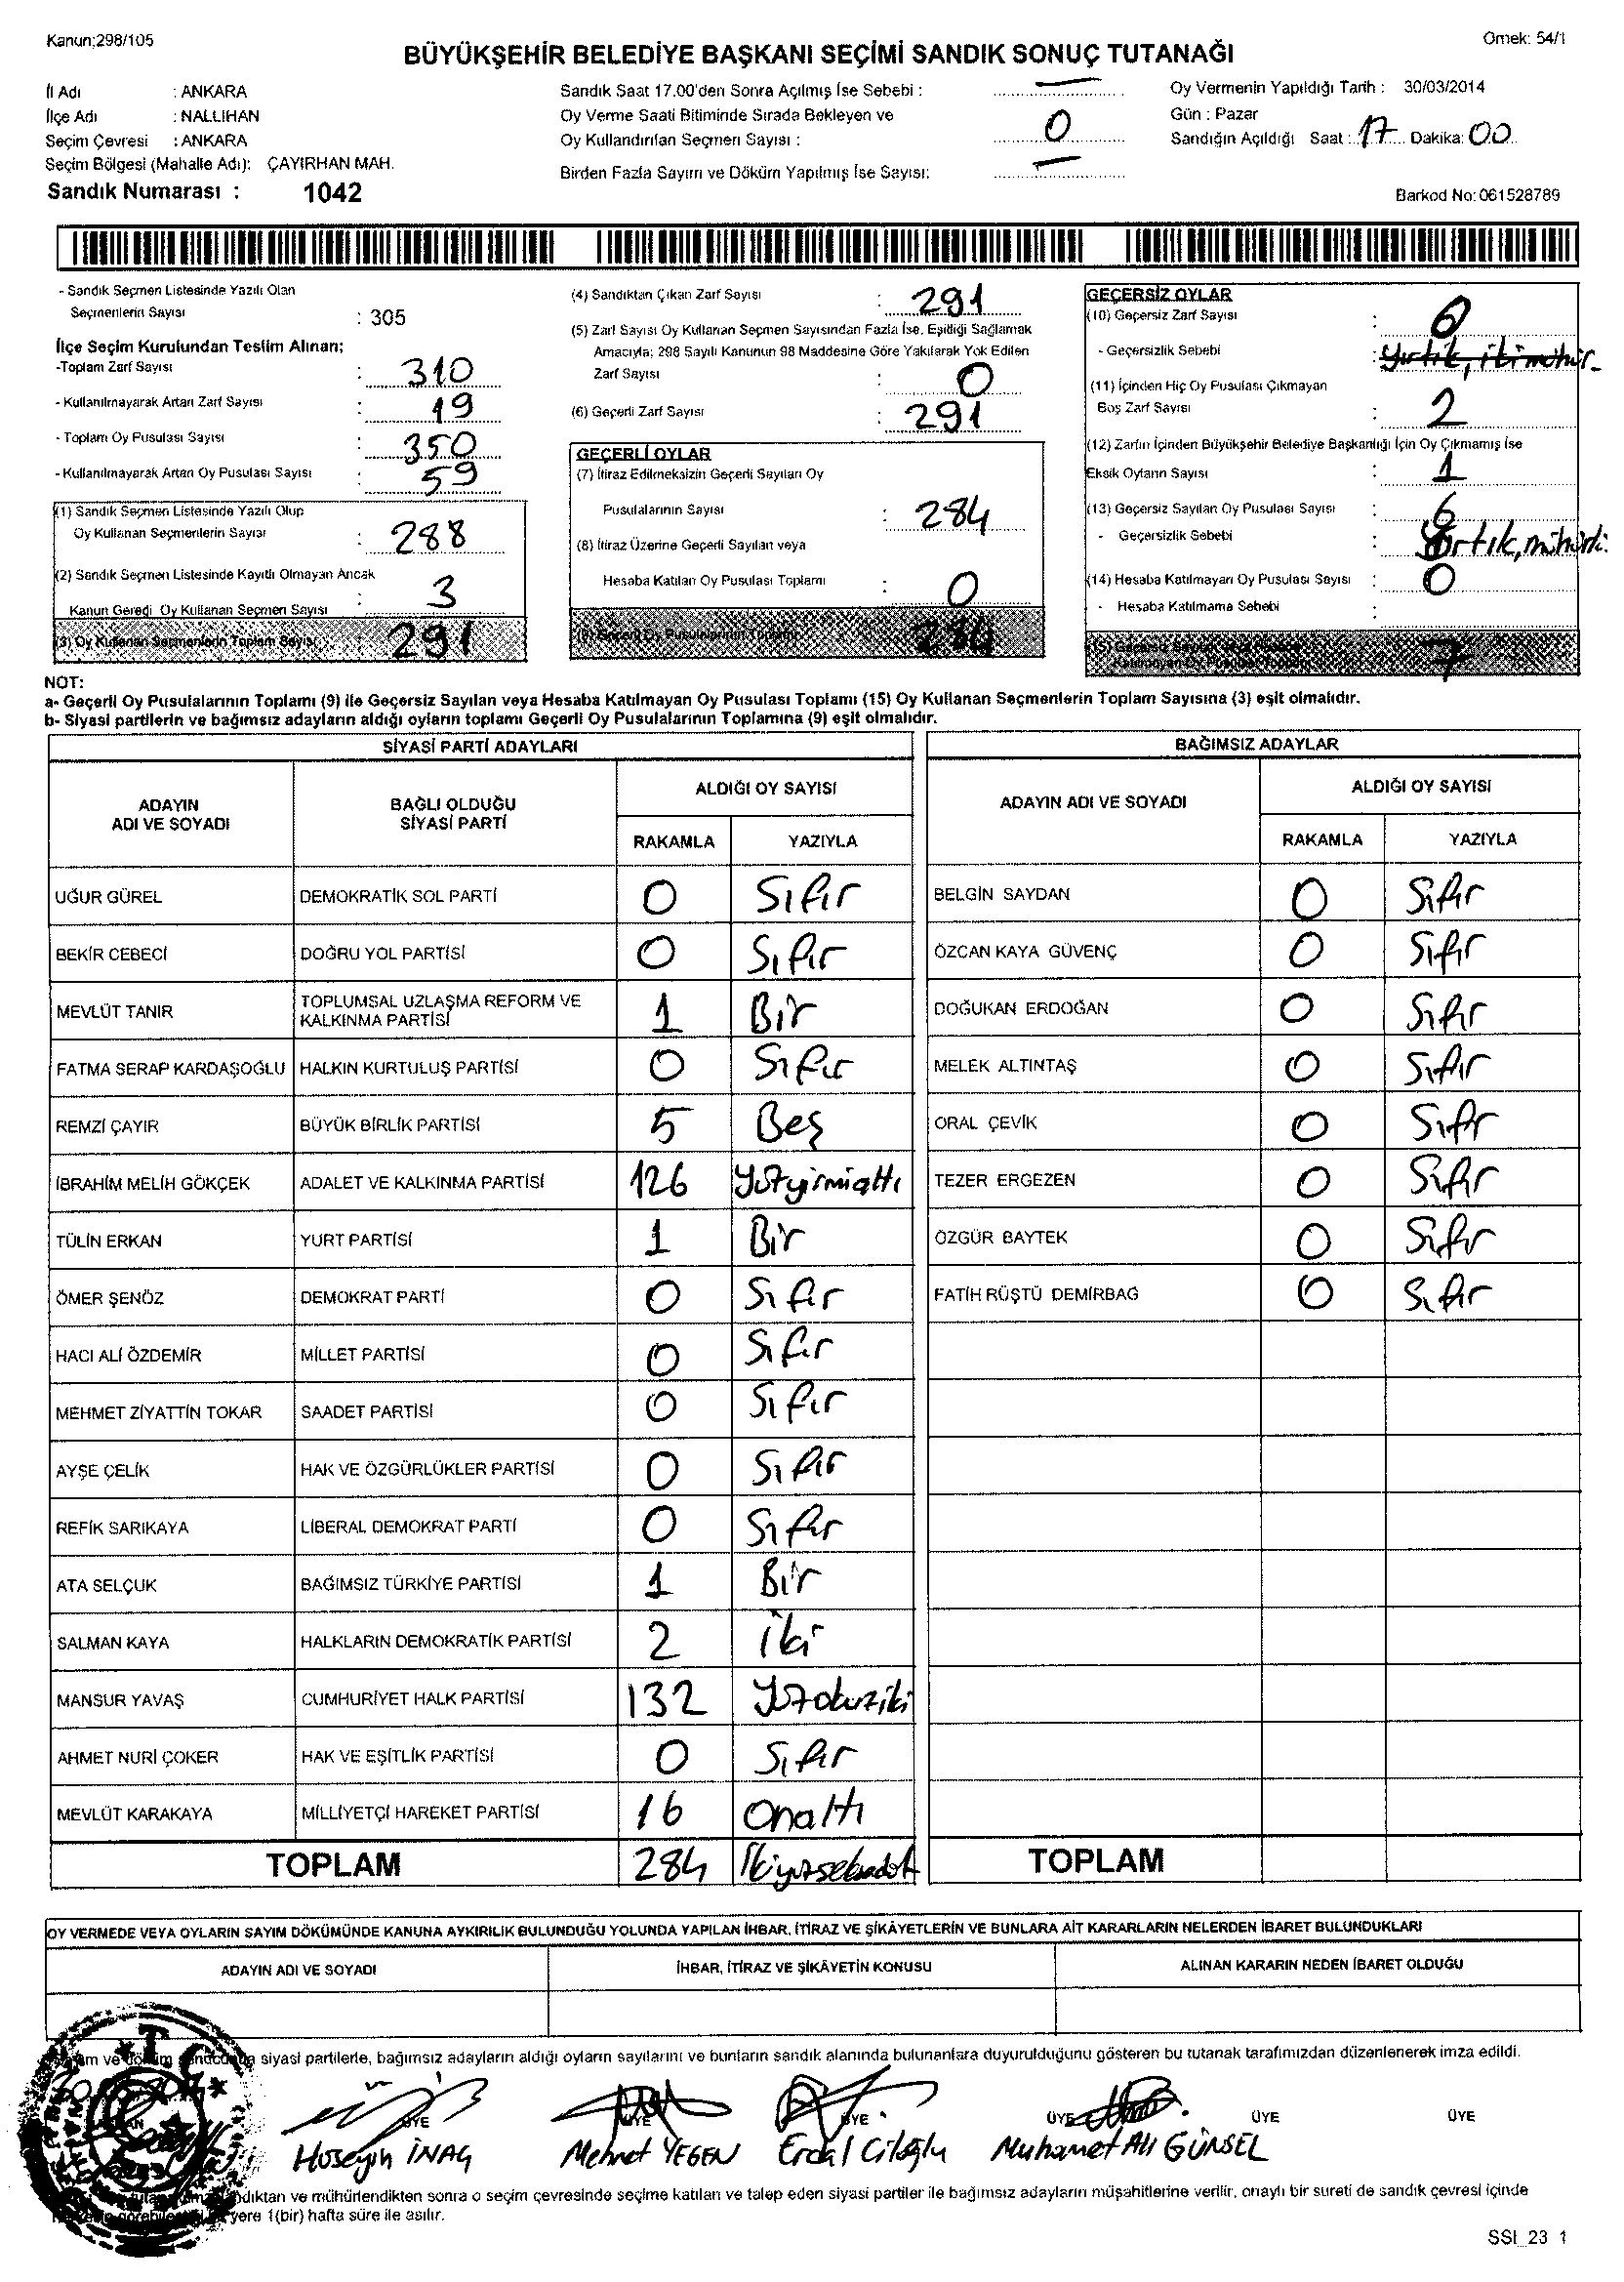 Kanun;298/105
Örnek: 54/1
BÜYÜKŞEHİR BELEDİYE BAŞKANI SEÇİMİ SANDIK SONUÇ TUTANAĞI
İl Adı : ANKARA
İlçe Adı : NALLIHAN
Seçim Çevresi : ANKARA
Seçim Bölgesi (Mahalle Adı): ÇAYIRHAN MAH.
Sandık Numarası : 1042
Sandık Saat 17.00'den Sonra Açılmış İse Sebebi : —
Oy Verme Saati Bitiminde Sırada Bekleyen ve
Oy Kullandırılan Seçmen Sayısı : 0
Birden Fazla Sayım ve Döküm Yapılmış İse Sayısı: —
Oy Vermenin Yapıldığı Tarih : 30/03/2014
Gün : Pazar
Sandığın Açıldığı Saat : 17 Dakika: 00
Barkod No: 061528789
- Sandık Seçmen Listesinde Yazılı Olan
Seçmenlerin Sayısı : 305
İlçe Seçim Kurulundan Teslim Alınan;
-Toplam Zarf Sayısı : 310
- Kullanılmayarak Artan Zarf Sayısı : 19
- Toplam Oy Pusulası Sayısı : 350
- Kullanılmayarak Artan Oy Pusulası Sayısı : 59
(1) Sandık Seçmen Listesinde Yazılı Olup
Oy Kullanan Seçmenlerin Sayısı : 288
(2) Sandık Seçmen Listesinde Kayıtlı Olmayan Ancak
Kanun Gereği Oy Kullanan Seçmen Sayısı : 3
(3) Oy Kullanan Seçmenlerin Toplam Sayısı : 291
(4) Sandıktan Çıkan Zarf Sayısı : 291
(5) Zarf Sayısı Oy Kullanan Seçmen Sayısından Fazla İse, Eşitliği Sağlamak
Amacıyla; 298 Sayılı Kanunun 98 Maddesine Göre Yakılarak Yok Edilen
Zarf Sayısı : 0
(6) Geçerli Zarf Sayısı : 291
GEÇERLİ OYLAR
(7) İtiraz Edilmeksizin Geçerli Sayılan Oy
Pusulalarının Sayısı : 284
(8) İtiraz Üzerine Geçerli Sayılan veya
Hesaba Katılan Oy Pusulası Toplamı : 0
(9) Geçerli Oy Pusulalarının Toplamı : 284
GEÇERSİZ OYLAR
(10) Geçersiz Zarf Sayısı : 0
- Geçersizlik Sebebi : Yırtık, iki mühür
(11) İçinden Hiç Oy Pusulası Çıkmayan
Boş Zarf Sayısı : 2
(12) Zarfın İçinden Büyükşehir Belediye Başkanlığı İçin Oy Çıkmamış İse
Eksik Oyların Sayısı : 1
(13) Geçersiz Sayılan Oy Pusulası Sayısı : 6
- Geçersizlik Sebebi : Yırtık, mühürlü
(14) Hesaba Katılmayan Oy Pusulası Sayısı : 0
- Hesaba Katılmama Sebebi :
(15) Geçersiz Sayılan veya Hesaba
Katılmayan Oy Pusulası Toplamı 7
NOT:
a- Geçerli Oy Pusulalarının Toplamı (9) ile Geçersiz Sayılan veya Hesaba Katılmayan Oy Pusulası Toplamı (15) Oy Kullanan Seçmenlerin Toplam Sayısına (3) eşit olmalıdır.
b- Siyasi partilerin ve bağımsız adayların aldığı oyların toplamı Geçerli Oy Pusulalarının Toplamına (9) eşit olmalıdır.
SİYASİ PARTİ ADAYLARI
ADAYIN ADI VE SOYADI BAĞLI OLDUĞU SİYASİ PARTİ ALDIĞI OY SAYISI
RAKAMLA YAZIYLA
UĞUR GÜREL DEMOKRATİK SOL PARTİ 0 Sıfır
BEKİR CEBECİ DOĞRU YOL PARTİSİ 0 Sıfır
MEVLÜT TANIR TOPLUMSAL UZLAŞMA REFORM VE KALKINMA PARTİSİ 1 Bir
FATMA SERAP KARDAŞOĞLU HALKIN KURTULUŞ PARTİSİ 0 Sıfır
REMZİ ÇAYIR BÜYÜK BİRLİK PARTİSİ 5 Beş
İBRAHİM MELİH GÖKÇEK ADALET VE KALKINMA PARTİSİ 126 Yüzyirmialtı
TÜLİN ERKAN YURT PARTİSİ 1 Bir
ÖMER ŞENÖZ DEMOKRAT PARTİ 0 Sıfır
HACI ALİ ÖZDEMİR MİLLET PARTİSİ 0 Sıfır
MEHMET ZİYATTİN TOKAR SAADET PARTİSİ 0 Sıfır
AYŞE ÇELİK HAK VE ÖZGÜRLÜKLER PARTİSİ 0 Sıfır
REFİK SARIKAYA LİBERAL DEMOKRAT PARTİ 0 Sıfır
ATA SELÇUK BAĞIMSIZ TÜRKİYE PARTİSİ 1 Bir
SALMAN KAYA HALKLARIN DEMOKRATİK PARTİSİ 2 İki
MANSUR YAVAŞ CUMHURİYET HALK PARTİSİ 132 Yüzotuziki
AHMET NURİ ÇOKER HAK VE EŞİTLİK PARTİSİ 0 Sıfır
MEVLÜT KARAKAYA MİLLİYETÇİ HAREKET PARTİSİ 16 Onaltı
TOPLAM 284 İkiyüzseksendört
BAĞIMSIZ ADAYLAR
ADAYIN ADI VE SOYADI ALDIĞI OY SAYISI
RAKAMLA YAZIYLA
BELGİN SAYDAN 0 Sıfır
ÖZCAN KAYA GÜVENÇ 0 Sıfır
DOĞUKAN ERDOĞAN 0 Sıfır
MELEK ALTINTAŞ 0 Sıfır
ORAL ÇEVİK 0 Sıfır
TEZER ERGEZEN 0 Sıfır
ÖZGÜR BAYTEK 0 Sıfır
FATİH RÜŞTÜ DEMİRBAĞ 0 Sıfır
TOPLAM
OY VERMEDE VEYA OYLARIN SAYIM DÖKÜMÜNDE KANUNA AYKIRILIK BULUNDUĞU YOLUNDA YAPILAN İHBAR, İTİRAZ VE ŞİKÂYETLERİN VE BUNLARA AİT KARARLARIN NELERDEN İBARET BULUNDUKLARI
ADAYIN ADI VE SOYADI İHBAR, İTİRAZ VE ŞİKÂYETİN KONUSU ALINAN KARARIN NEDEN İBARET OLDUĞU
siyasi partilerle, bağımsız adayların aldığı oyların sayılarını ve bunların sandık alanında bulunanlara duyurulduğunu gösteren bu tutanak tarafımızdan düzenlenerek imza edildi.
ÜYE ÜYE ÜYE ÜYE ÜYE ÜYE
Hüseyin İNAÇ Mehmet YEGEN Erdal Ciloğlu Muhamet Ali GÜNSEL
ve mühürlendikten sonra o seçim çevresinde seçime katılan ve talep eden siyasi partiler ile bağımsız adayların müşahitlerine verilir, onaylı bir sureti de sandık çevresi içinde
yere 1(bir) hafta süre ile asılır.
SSI_23 1